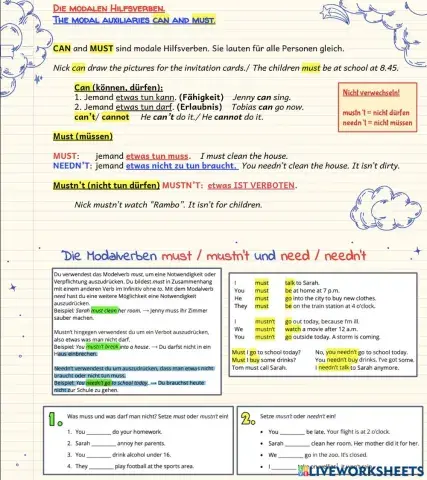 DIE MODALEN HILFSVERBEN.
THE MODAL AUXILIARIES CAN AND MUST.
CAN and MUST sind modale Hilfsverben. Sie lauten für alle Personen gleich.
Nick can draw the pictures for the invitation cards./ The children must be at school at 8.45.
Can (können, dürfen):
1. Jemand etwas tun kann. (Fähigkeit) Jenny can sing.
2. Jemand etwas tun darf. (Erlaubnis) Tobias can go now.
can't/ cannot He can't do it./ He cannot do it.
Nicht verwechseln!
mustn't = nicht dürfen
needn't = nicht müssen
Must (müssen)
MUST: jemand etwas tun muss. I must clean the house.
NEEDN'T: jemand etwas nicht zu tun braucht. You needn't clean the house. It isn't dirty.
Mustn't (nicht tun dürfen) MUSTN'T: etwas IST VERBOTEN.
Nick mustn't watch "Rambo". It isn't for children.
Die Modalverben must / mustn't und need / needn't
Du verwendest das Modalverb must, um eine Notwendigkeit oder
Verpflichtung auszudrücken. Du bildest must in Zusammenhang
mit einem anderen Verb im Infinitiv ohne to. Mit dem Modalverb
need hast du eine weitere Möglichkeit eine Notwendigkeit
auszudrücken.
Beispiel: Sarah must clean her room. → Jenny muss ihr Zimmer
sauber machen.
Mustn't hingegen verwendest du um ein Verbot auszudrücken,
also etwas was man nicht darf.
Beispiel: You mustn't break into a house. → Du darfst nicht in ein
Haus einbrechen.
Needn't verwendest du um auszudrücken, dass man etwas nicht
braucht oder nicht tun muss.
Beispiel: You needn't go to school today. → Du brauchst heute
nicht zur Schule zu gehen.
I must talk to Sarah.
You must be at home at 7 p.m.
He must go into the city to buy new clothes.
They must be on the train station at 4 o'clock.
I mustn't go out today, because I'm ill.
We mustn't watch a movie after 12 a.m.
You mustn't go outside today. A storm is coming.
Must I go to school today? No, you needn't go to school today.
Must I buy some drinks? You needn't buy drinks. I've got some.
Tom must call Sarah. I needn't talk to Sarah anymore.
1. Was muss und was darf man nicht? Setze must oder mustn't ein!
1. You ________ do your homework.
2. Sarah ________ annoy her parents.
3. You ________ drink alcohol under 16.
4. They ________ play football at the sports area.
2. Setze mustn't oder needn't ein!
• You ________ be late. Your flight is at 2 o'clock.
• Sarah ________ clean her room. Her mother did it for her.
• We ________ go in the zoo. It's closed.
• I
LIVEWORKSHEETS